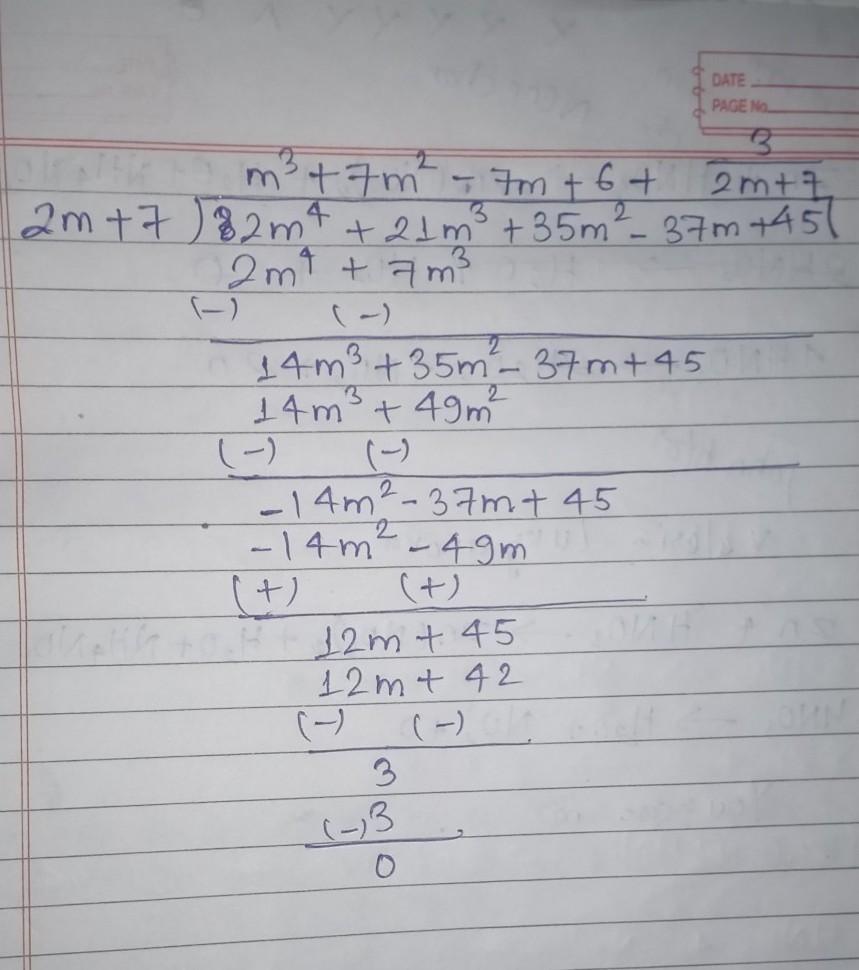 DATE
PAGE No.
3
m³ + 7m² - 7m + 6 + 2m+7
2m+7 ) 2m⁴ + 21m³ + 35m² - 37m + 45 (
2m⁴ + 7m³
(-) (-)
14m³ + 35m² - 37m + 45
14m³ + 49m²
(-) (-)
-14m² - 37m + 45
-14m² - 49m
(+) (+)
12m + 45
12m + 42
(-) (-)
3
(-)3
0